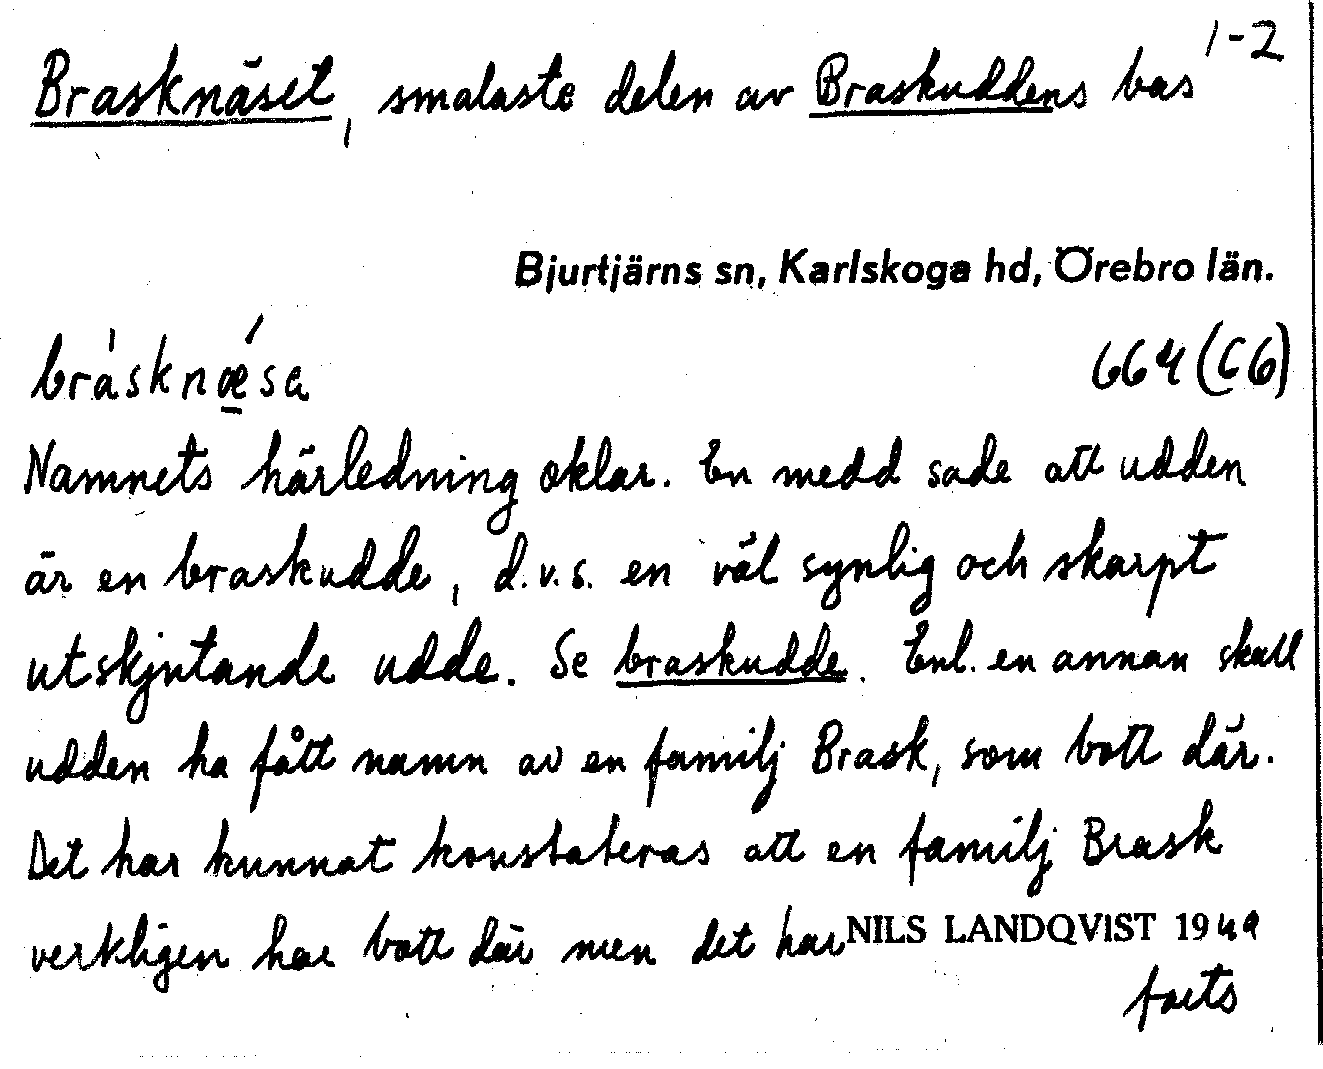 1-2
Brasknäset, smalaste delen av Braskuddens bas
Bjurtjärns sn, Karlskoga hd, Örebro län.
bràsknǽsa 664 (C6)
Namnets härledning oklar. En medd sade att udden
är en braskudde, d.v.s. en väl synlig och skarpt
utskjutande udde. Se braskudde. Enl. en annan skall
udden ha fått namn av en familj Brask, som bott där.
Det har kunnat konstateras att en familj Brask
verkligen har bott där men det har NILS LANDQVIST 1949
forts